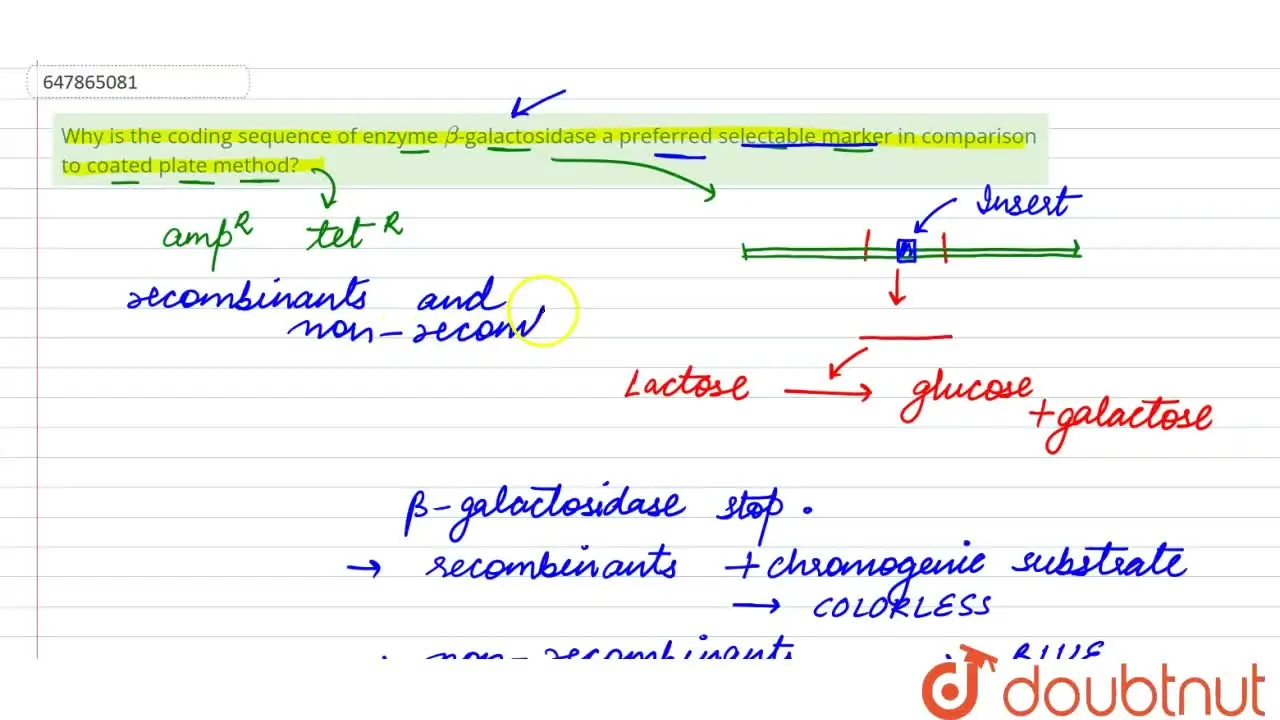 647865081
Why is the coding sequence of enzyme β-galactosidase a preferred selectable marker in comparison
to coated plate method?
Insert
amp^R tet^R
recombinants and
non-recom
Lactose → glucose
+ galactose
β-galactosidase stop.
→ recombinants + chromogenic substrate
→ COLORLESS
non-recombinants → BLUE
doubtnut